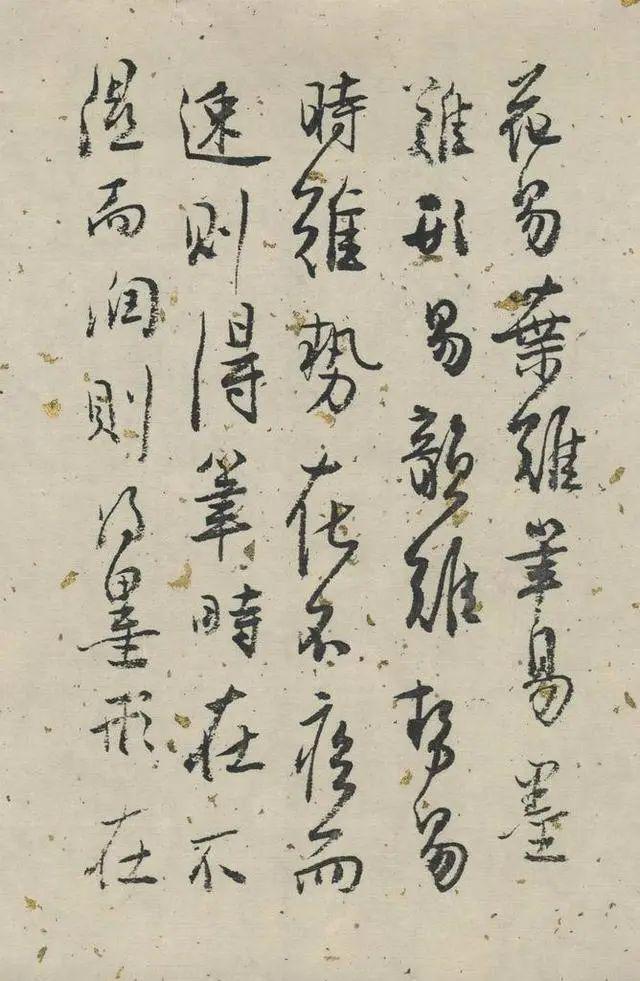 花易葉難筆易墨
難形易韻難勢易
時難勢在不疾而
速則得筆時在不
湿而潤則得墨形在